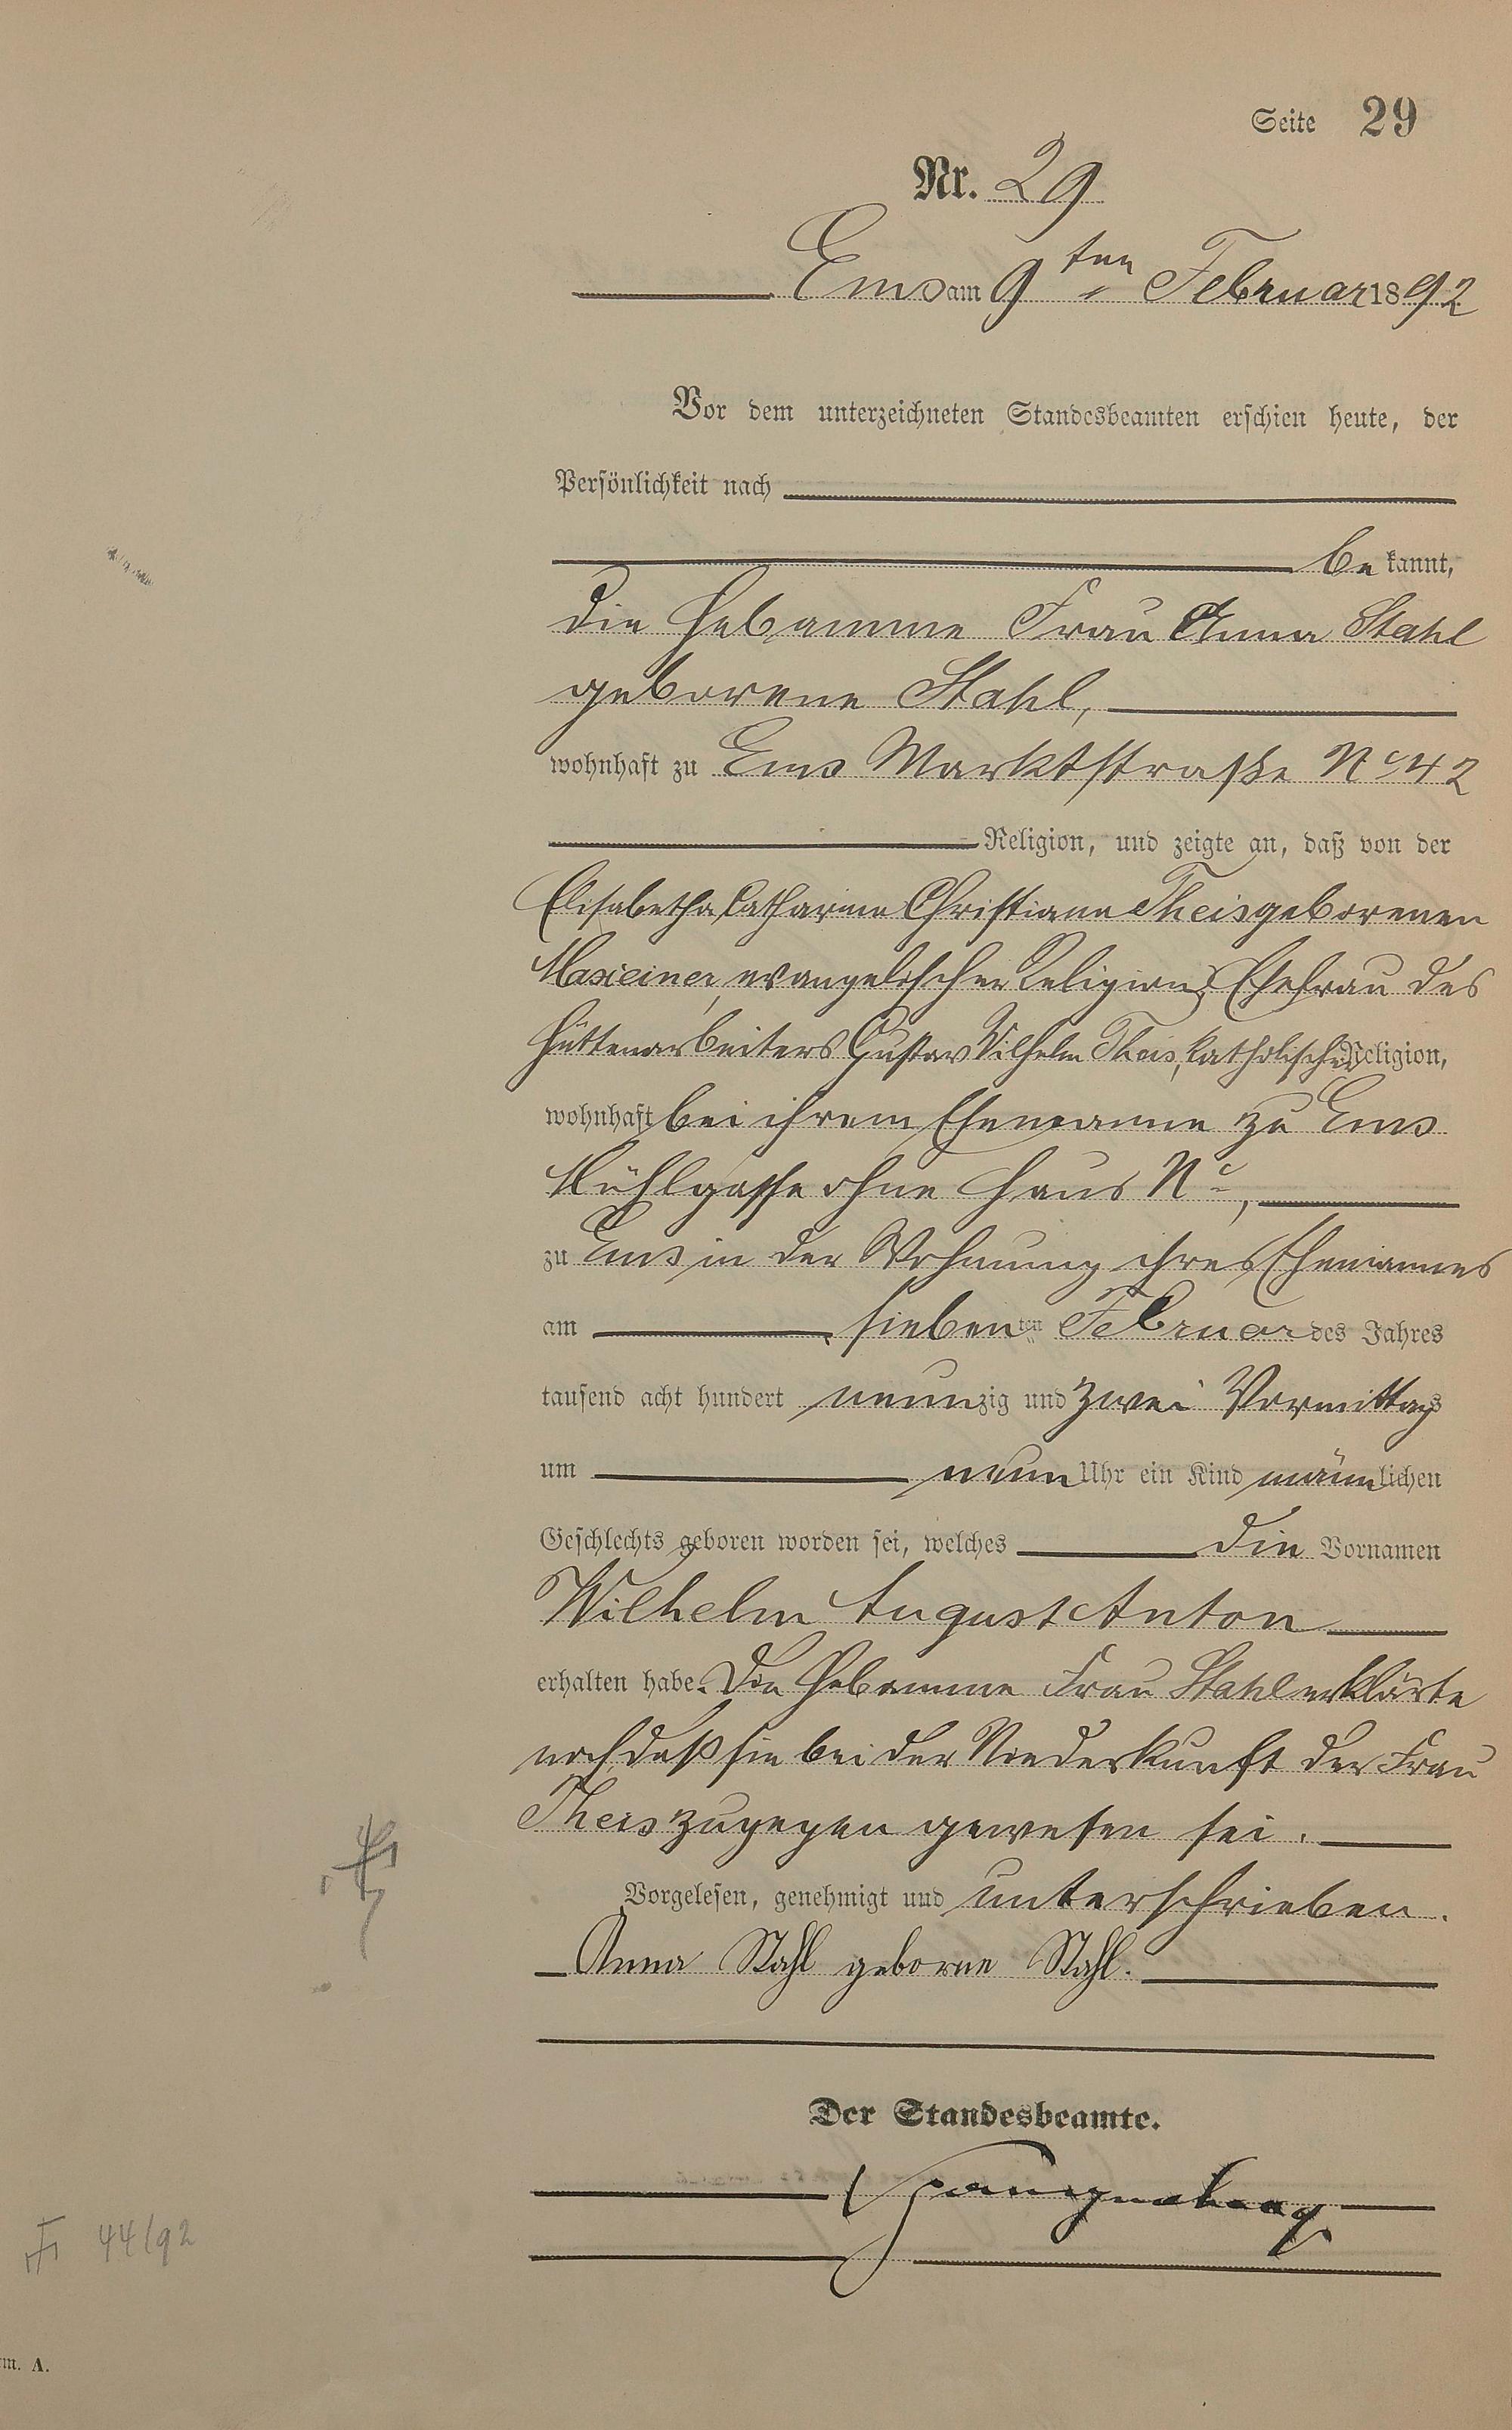 Seite 29
Nr. 29
Ems am 9ten Februar 1892
Vor dem unterzeichneten Standesbeamten erschien heute, der
Persönlichkeit nach
bekannt,
die Hebamme Frau Anna Stahl
geborene Stahl,
wohnhaft zu Ems Marktstraße No 42
Religion, und zeigte an, daß von der
Elisabetha Catharina Christiane Theis geborenen
Maxeiner, evangelischer Religion, Ehefrau des
Hüttenarbeiters Gustav Wilhelm Theis, katholischer Religion,
wohnhaft bei ihrem Ehemanne zu Ems
Mühlgasse ohne Haus No,
zu Ems in der Wohnung ihres Ehemannes
am siebenten Februar des Jahres
tausend acht hundert neunzig und zwei Vormittags
um neun Uhr ein Kind männlichen
Geschlechts geboren worden sei, welches die Vornamen
Wilhelm August Anton
erhalten habe. Die Hebamme Frau Stahl erklärte
noch, daß sie bei der Niederkunft der Frau
Theis zugegen gewesen sei.
Vorgelesen, genehmigt und unterschrieben.
Anna Stahl geborne Stahl.
Der Standesbeamte.
44/92
m. A.